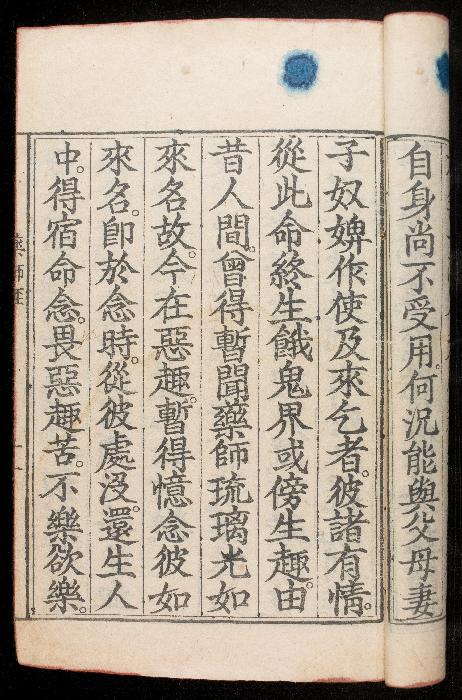 自身尚不受用。何況能與父母妻
子奴婢作使及來乞者。彼諸有情。
從此命終生餓鬼界或傍生趣。由
昔人間。曾得暫聞藥師琉璃光如
來名故。今在惡趣。暫得憶念彼如
來名。卽於念時。從彼處沒。還生人
中。得宿命念。畏惡趣苦。不樂欲樂。
藥師經